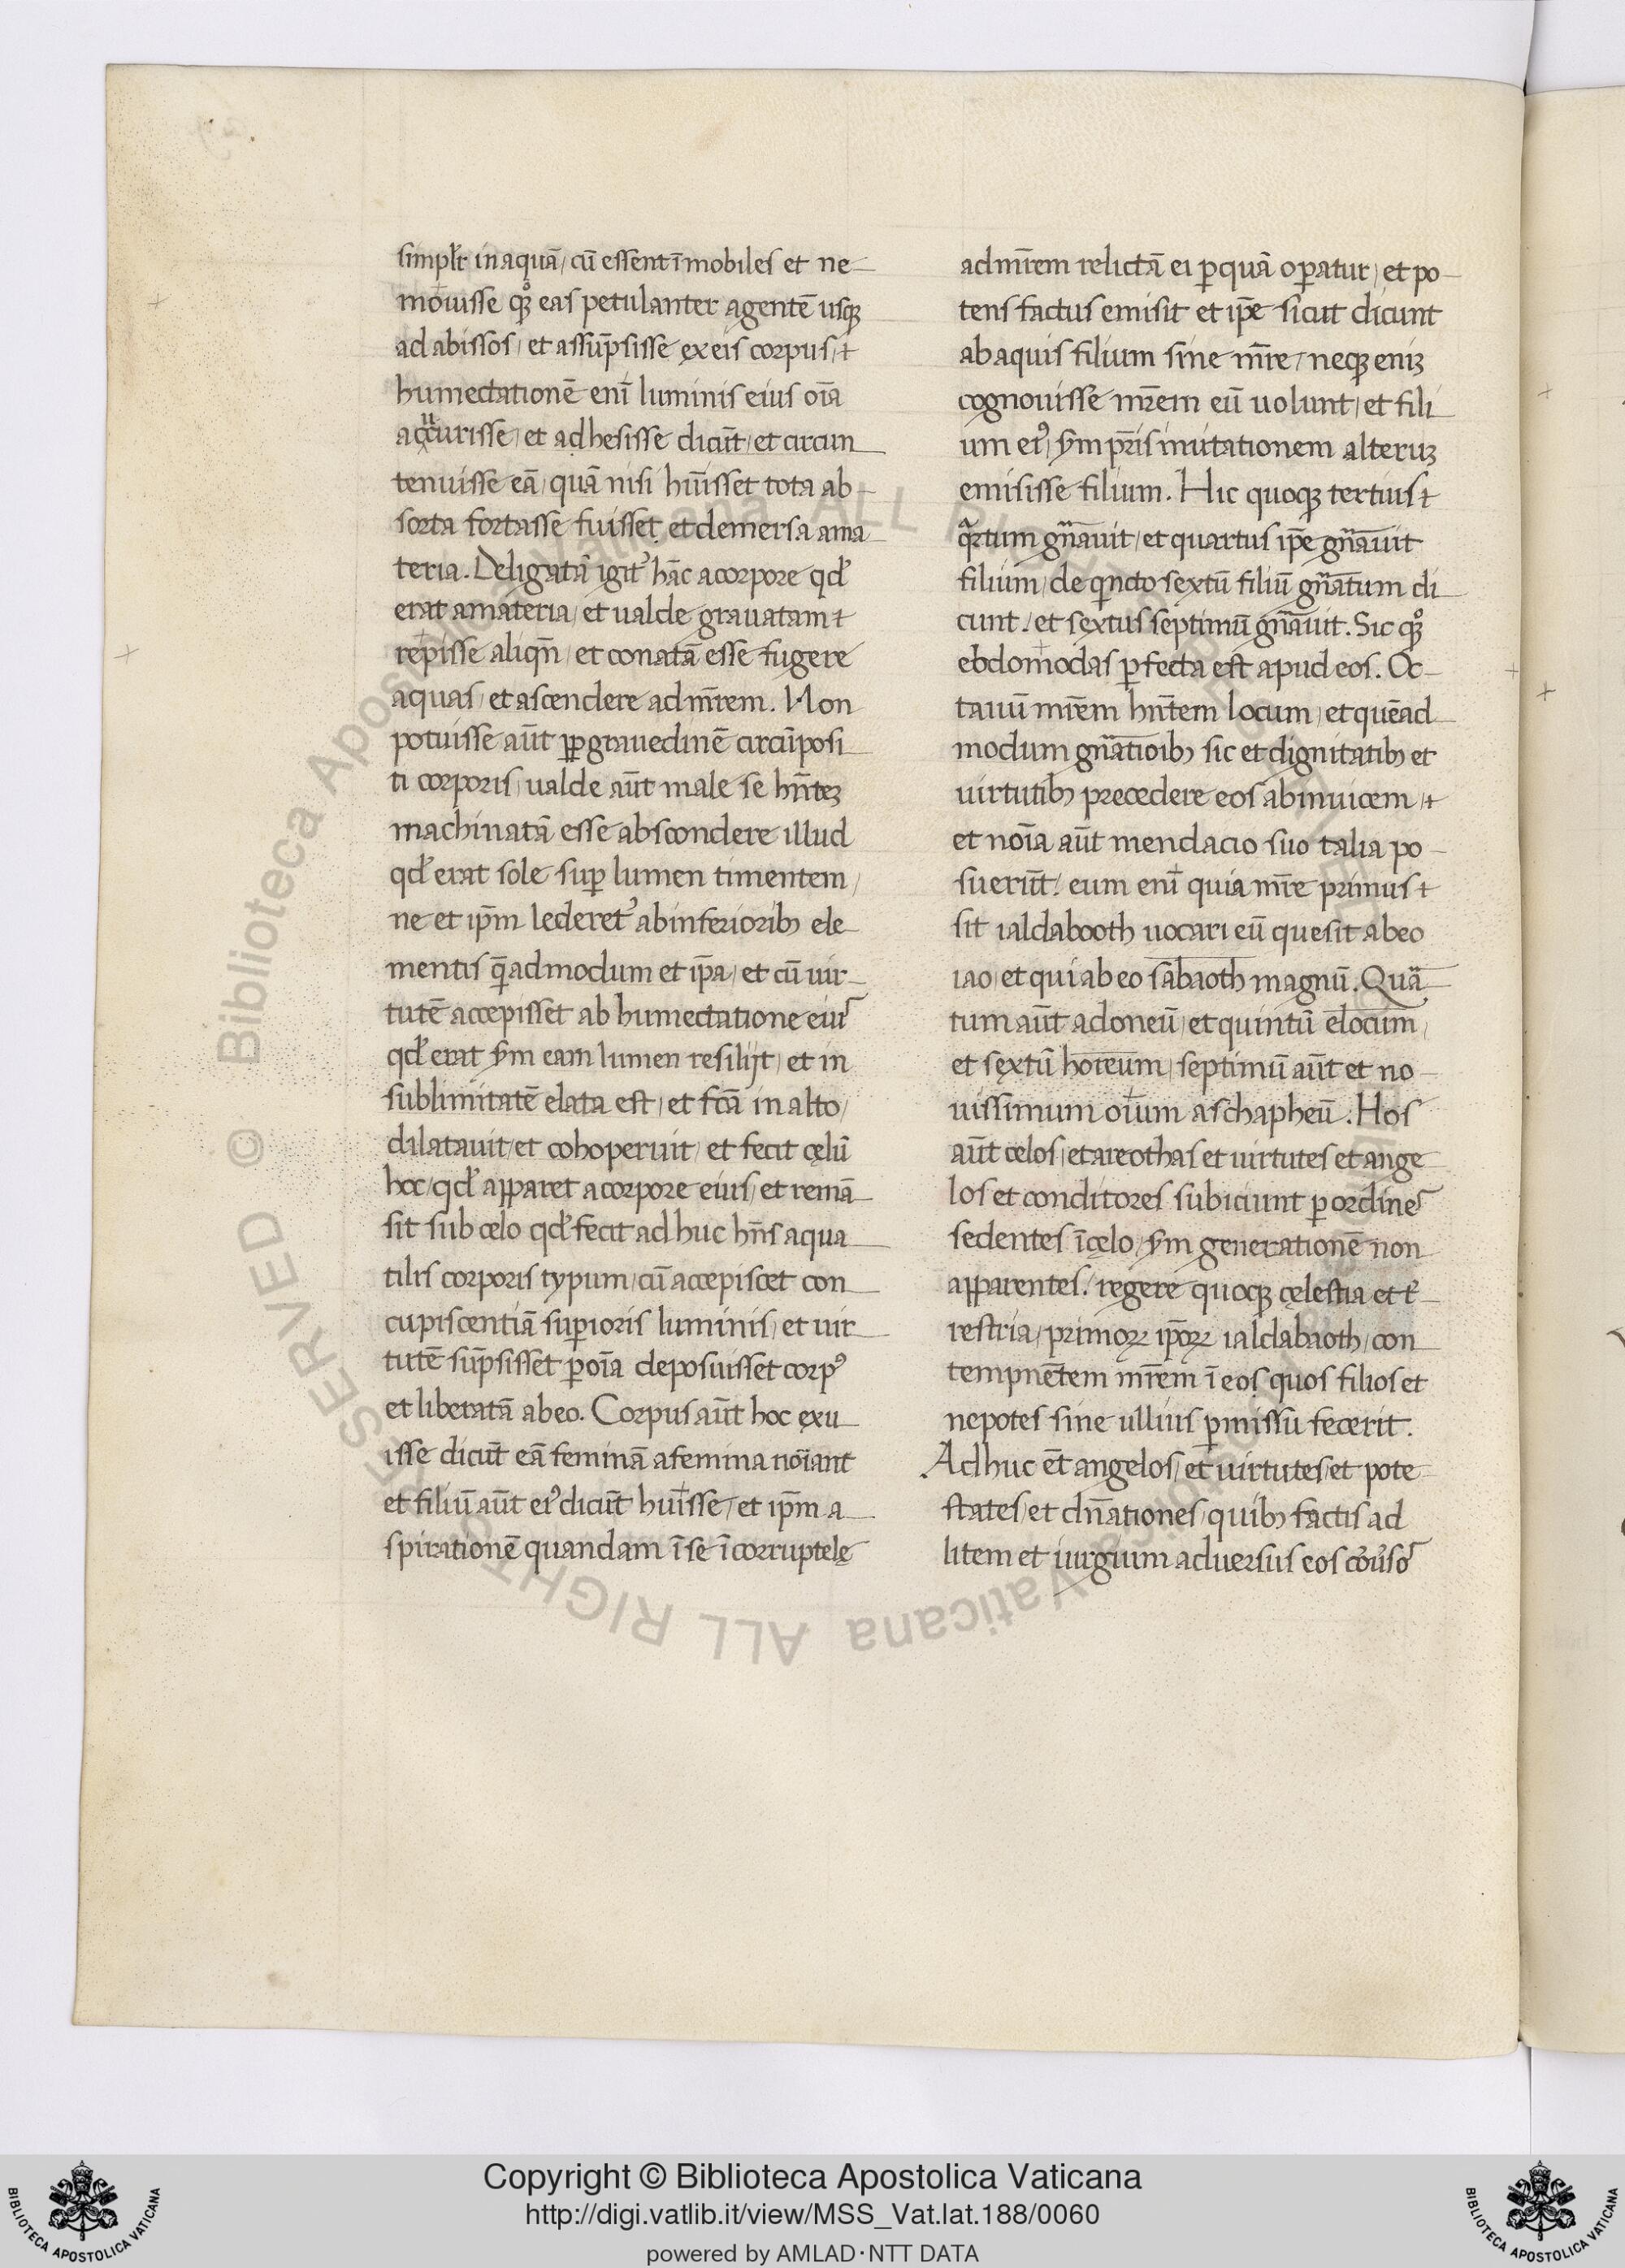 simplr̄ in aquā / cū essent īmobiles et ne
mouisse qꝫ eas petulanter agentē usqꝫ
ad abissos / et assūpsisse ex eis corpus / +
humectationē enī luminis eius oīa
accurisse / et adhesisse dicūt / et circun
tenuisse eā / quā nisi hūisset tota ab
sorta fortasse fuisset et demersa a ma
teria. Deligatā igit᷑ hāc a corpore qđ
erat a materia / et ualde grauatam +
repisse aliqn̄ / et conatā esse fugere
aquas / et ascendere ad mr̄em. Non
potuisse aūt ꝓp grauedinē circūposi
ti corporis / ualde aūt male se hn̄teꝫ
machinatā esse abscondere illud
qđ erat sole suꝑ lumen timentem /
ne et ip̄m lederet᷑ ab inferioribꝫ ele
mentis q̄admodum et ip̄a / et cū uir
tutē accepisset ab humectatione eius
qđ erat s̄m eam lumen resilijt / et in
sublimitatē elata est / et fcā in alto /
dilatauit / et cohoperuit / et fecit cęlū
hoc / qđ apparet a corpore eius / et remā
sit sub celo qđ fecit adhuc hn̄s aqua
tilis corporis typum / cū accepiscet con
cupiscentiā suꝑioris luminis / et uir
tutē sūpsisset ꝑ oīa deposuisset corpꝰ
et liberatā ab eo. Corpus aūt hoc exu
isse dicūt eā feminā a femina noīant
et filiū aūt eiꝰ dicūt huīsse / et ip̄m a
spirationē quandam ī se īcorruptelę
ad mr̄em relictā ei ꝑ quā oꝑatur / et po
tens factus emisit et ip̄e sicut dicunt
ab aquis filium sine mr̄e / neqꝫ eniꝫ
cognouisse mr̄em eū uolunt / et fili
um eiꝰ / s̄m pr̄is imitationem alteruꝫ
emisisse filium. Hic quoqꝫ tertius +
qͣrtum gn̄auit / et quartus ip̄e gn̄auit
filium / de qͥncto sextū filiū gn̄atum di
cunt / et sextus septimū gn̄auit. Sic qꝫ
ebdomodas ꝑfecta est apud eos. Oc
tauū mr̄em hn̄tem locum / et quēad
modum gn̄atioībꝫ sic et dignitatibꝫ et
uirtutibꝫ precedere eos abinuicem / +
et noīa aūt mendacio suo talia po
suerūt / eum enī quia mr̄e primus +
sit ialdabooth uocari eū quesit ab eo
iao / et qui ab eo sabaoth magnū. Quā
tum aūt adoneū / et quintū elocum /
et sextū horeum / septimū aūt et no
uissimum oīum aschapheū. Hos
aūt celos / et areothas et uirtutes et ange
los et conditores subiciunt ꝑ ordines
sedentes ī cęlo / s̄m generationē non
apparentes / regere quoqꝫ cęlestia et t̄
restria / primoꝝ ip̄oꝝ ialdabaoth / con
tempnētem mr̄em ī eos quos filios et
nepotes sine ullius ꝑmissu fecerit.
Adhuc ēt angelos / et uirtutes / et pote
states / et dn̄ationes / quibꝫ factis ad
litem et iurgium aduersus eos cōuˀsos
© Biblioteca Apostolica Vaticana ALL RIGHTS RESERVED
Copyright © Biblioteca Apostolica Vaticana
http://digi.vatlib.it/view/MSS_Vat.lat.188/0060
powered by AMLAD·NTT DATA
BIBLIOTECA APOSTOLICA VATICANA
BIBLIOTECA APOSTOLICA VATICANA